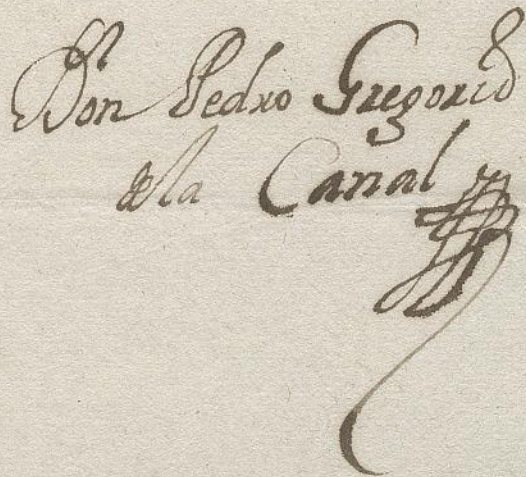 Don Pedro Gregorio
de la Canal